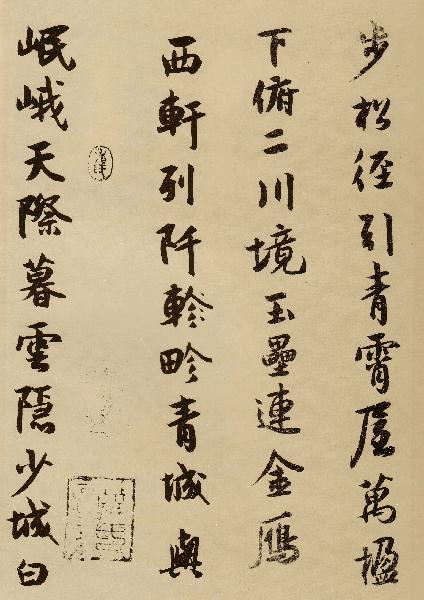 步松徑引青霄屋萬楹
下俯二川境玉壘連金雁
西軒列阡軫畛青城與
岷峨天際暮雲隱少城白